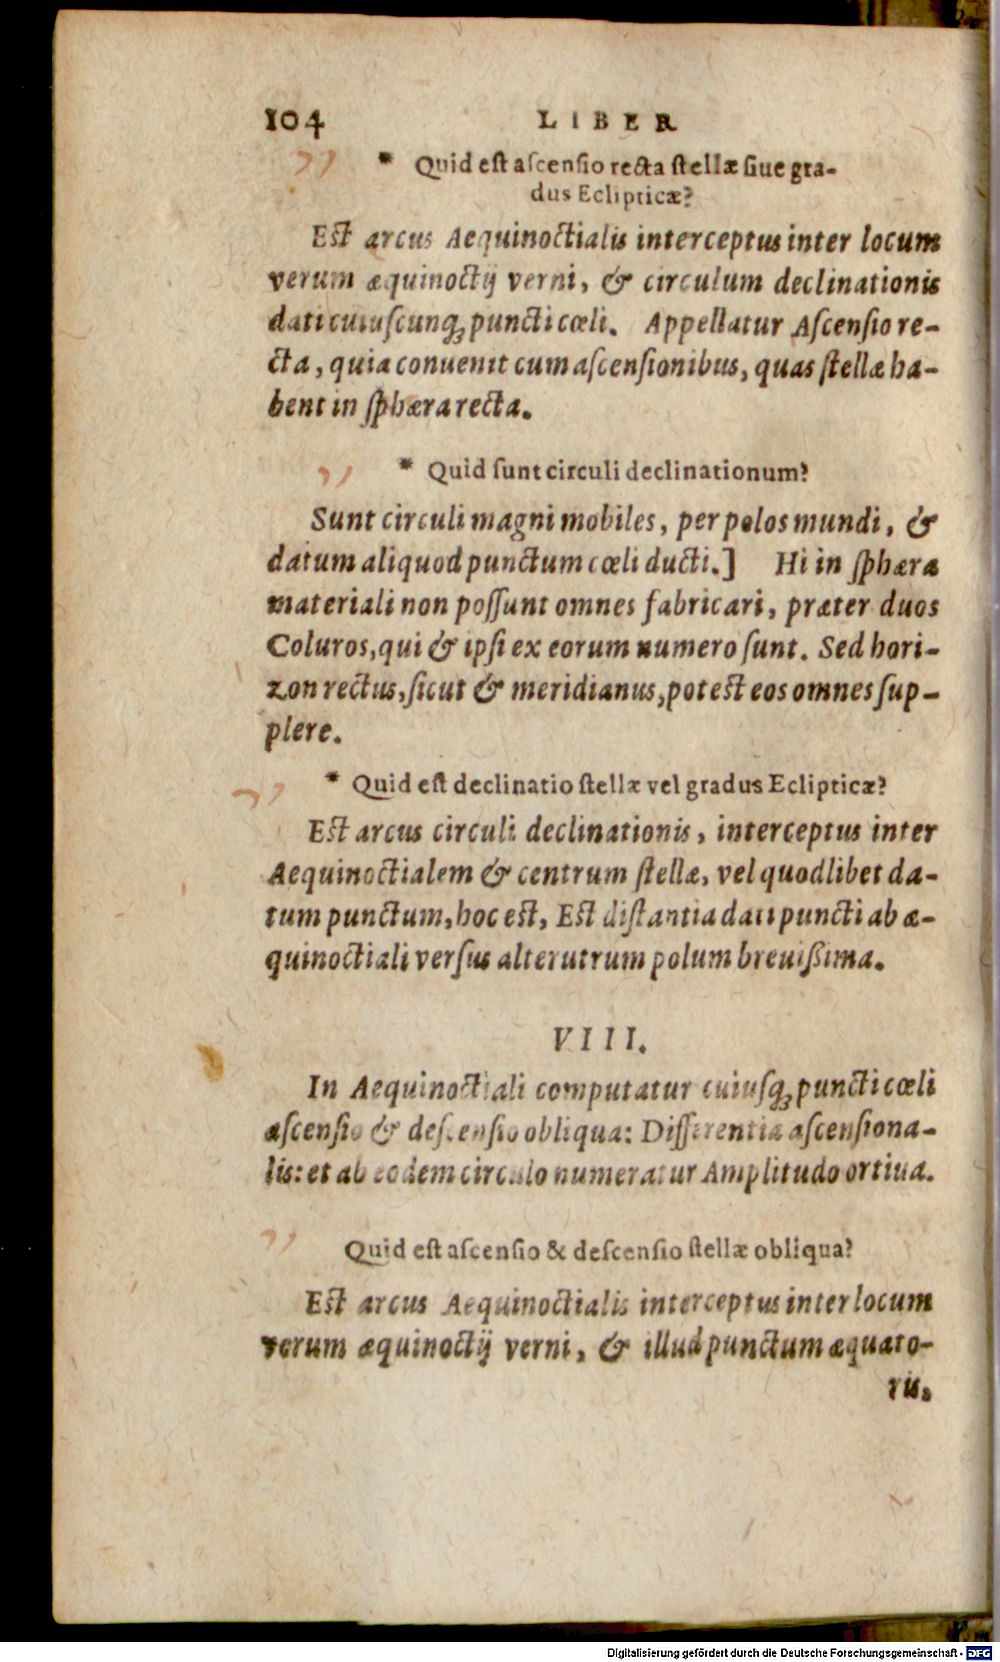 104 LIBER
* Quid est ascensio recta stellæ siue gra-
dus Eclipticæ?
Est arcus Aequinoctialis interceptus inter locum
verum æquinoctij verni, & circulum declinationis
dati cuiuscunq; puncti cœli. Appellatur Ascensio re-
cta, quia conuenit cum ascensionibus, quas stellæ ha-
bent in sphæra recta.
* Quid sunt circuli declinationum?
Sunt circuli magni mobiles, per polos mundi, &
datum aliquod punctum cœli ducti.] Hi in sphæra
materiali non possunt omnes fabricari, præter duos
Coluros, qui & ipsi ex eorum numero sunt. Sed hori-
zon rectus, sicut & meridianus, potest eos omnes sup-
plere.
* Quid est declinatio stellæ vel gradus Eclipticæ?
Est arcus circuli declinationis, interceptus inter
Aequinoctialem & centrum stellæ, vel quodlibet da-
tum punctum, hoc est, Est distantia dati puncti ab æ-
quinoctiali versus alterutrum polum breuißima.
VIII.
In Aequinoctiali computatur cuiusq; puncti cœli
ascensio & descensio obliqua: Differentia ascensiona-
lis: et ab eodem circulo numeratur Amplitudo ortiua.
Quid est ascensio & descensio stellæ obliqua?
Est arcus Aequinoctialis interceptus inter locum
verum æquinoctij verni, & illud punctum æquato-
ris,
Digitalisierung gefördert durch die Deutsche Forschungsgemeinschaft - DFG